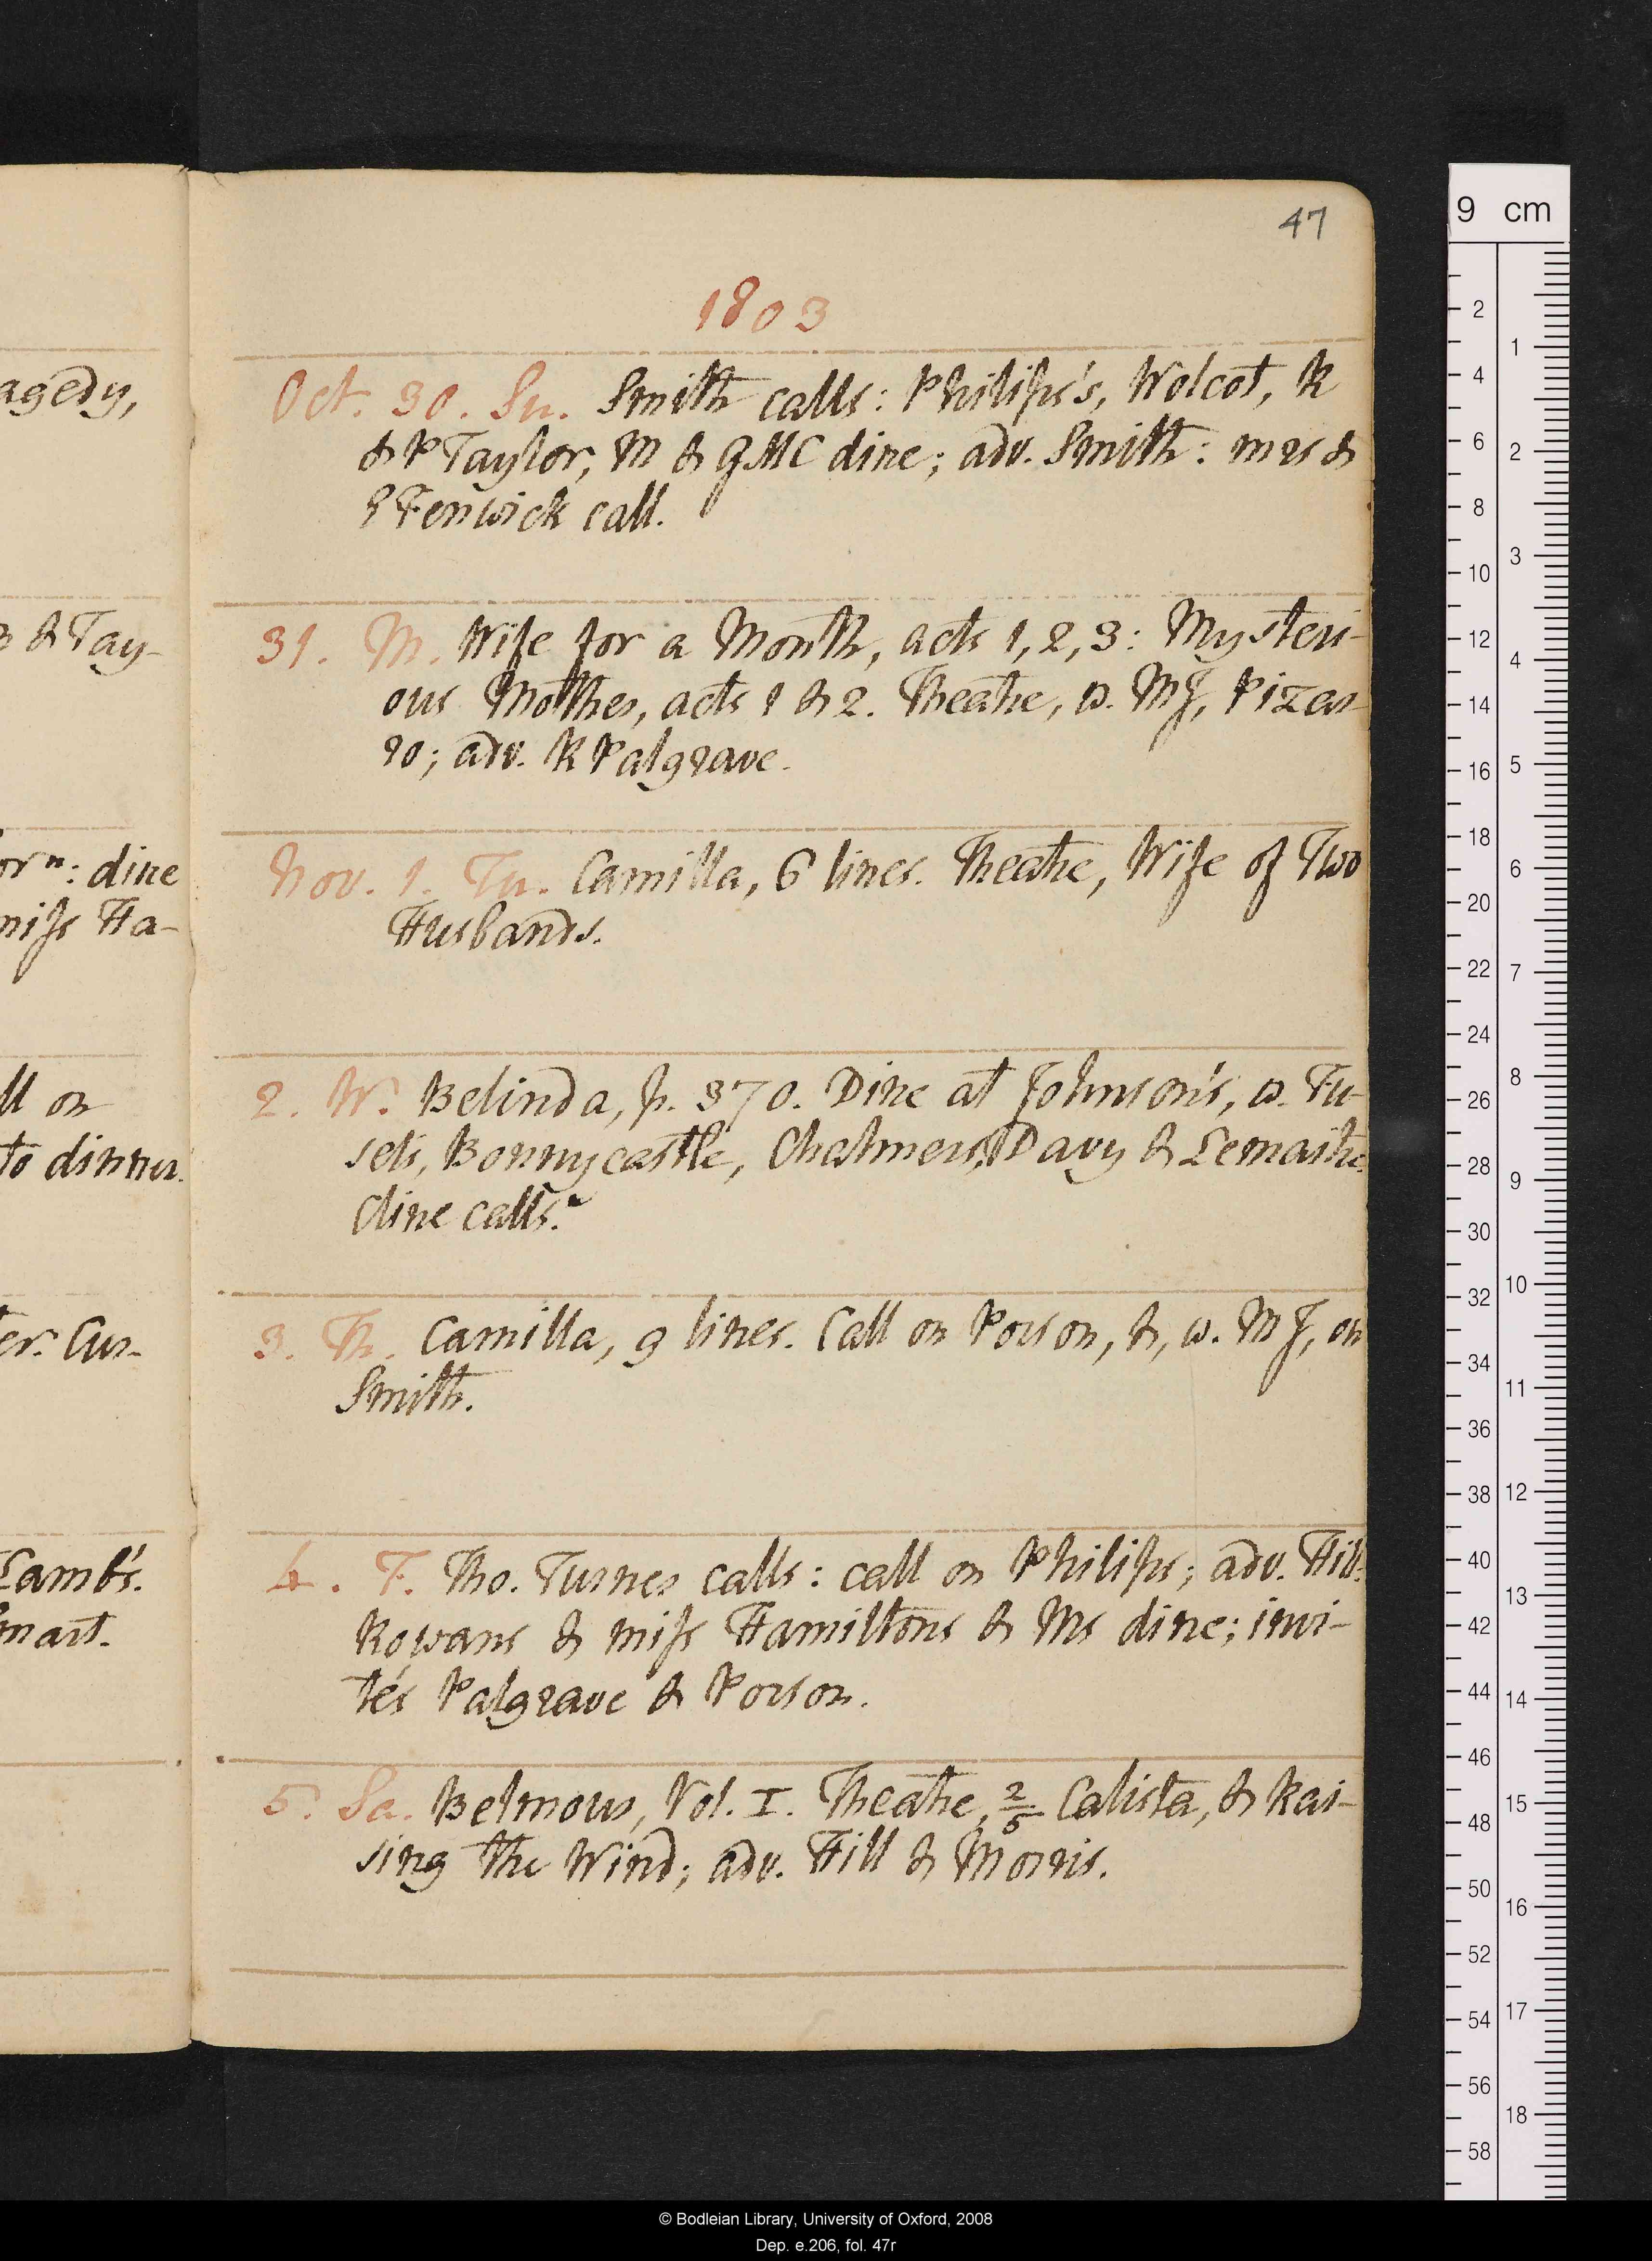 47
1803
Oct. 30. Su. Smith calls: Philips's, Wolcot, R
& P Taylor, M & G M C dine; adv. Smith: mrs &
Fenwick call.
31. M. Wife for a Month, acts 1, 2, 3: Mysteri-
ous Mother, acts 1 & 2. Theatre, w. MJ, Pizar-
ro; adv. R Palgrave.
Nov. 1. Tu. Camilla, 6 lines. Theatre, Wife of Two
Husbands.
2. W. Belinda, p. 370. Dine at Johnson's, w. Fu-
seli, Bonnycastle, Chalmers, Davy & Lemaitre.
Cline calls.
3. Th. Camilla, 9 lines. Call on Porson, &, w. MJ, on
Smith.
4. F. Tho. Turner calls: call on Philips; adv. Hill:
Rowans & miss Hamiltons & Ms dine; invi-
tés Palgrave & Porson.
5. Sa. Belmour, Vol. I. Theatre, 2/5 Calista, & Rai-
sing the Wind; adv. Hill & Morris.
agedy,
& Tay-
orn: dine
miss Ha-
ll on
to dinner.
er. Cur-
Lamb's.
mart.
9 cm
2
4
6
8
10
12
14
16
18
20
22
24
26
28
30
32
34
36
38
40
42
44
46
48
50
52
54
56
58
1
2
3
4
5
6
7
8
9
10
11
12
13
14
15
16
17
18
© Bodleian Library, University of Oxford, 2008
Dep. e.206, fol. 47r